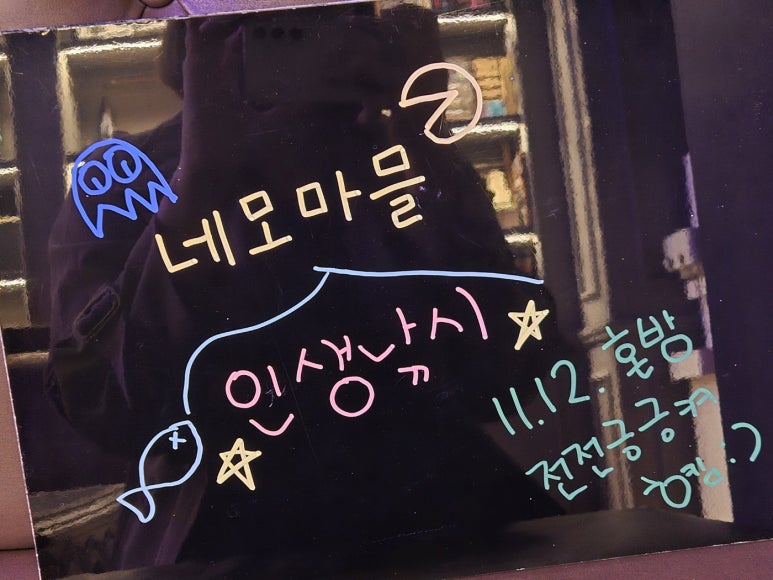 네모마믈
인생낚시
11.12. 혼방
전전긍긍
:)